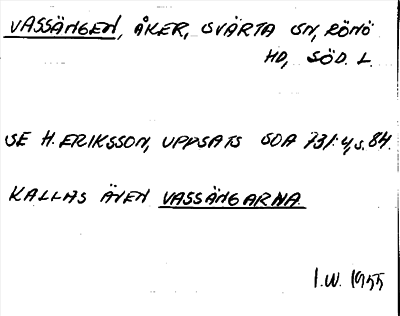 VASSÄNGEN, ÅKER, SVÄRTA SN, RÖNÖ
HD, SÖD. L.
SE H. ERIKSSON, UPPSATS SOA 731:4, s. 84.
KALLAS ÄVEN VASSÄNGARNA.
I.W. 1955